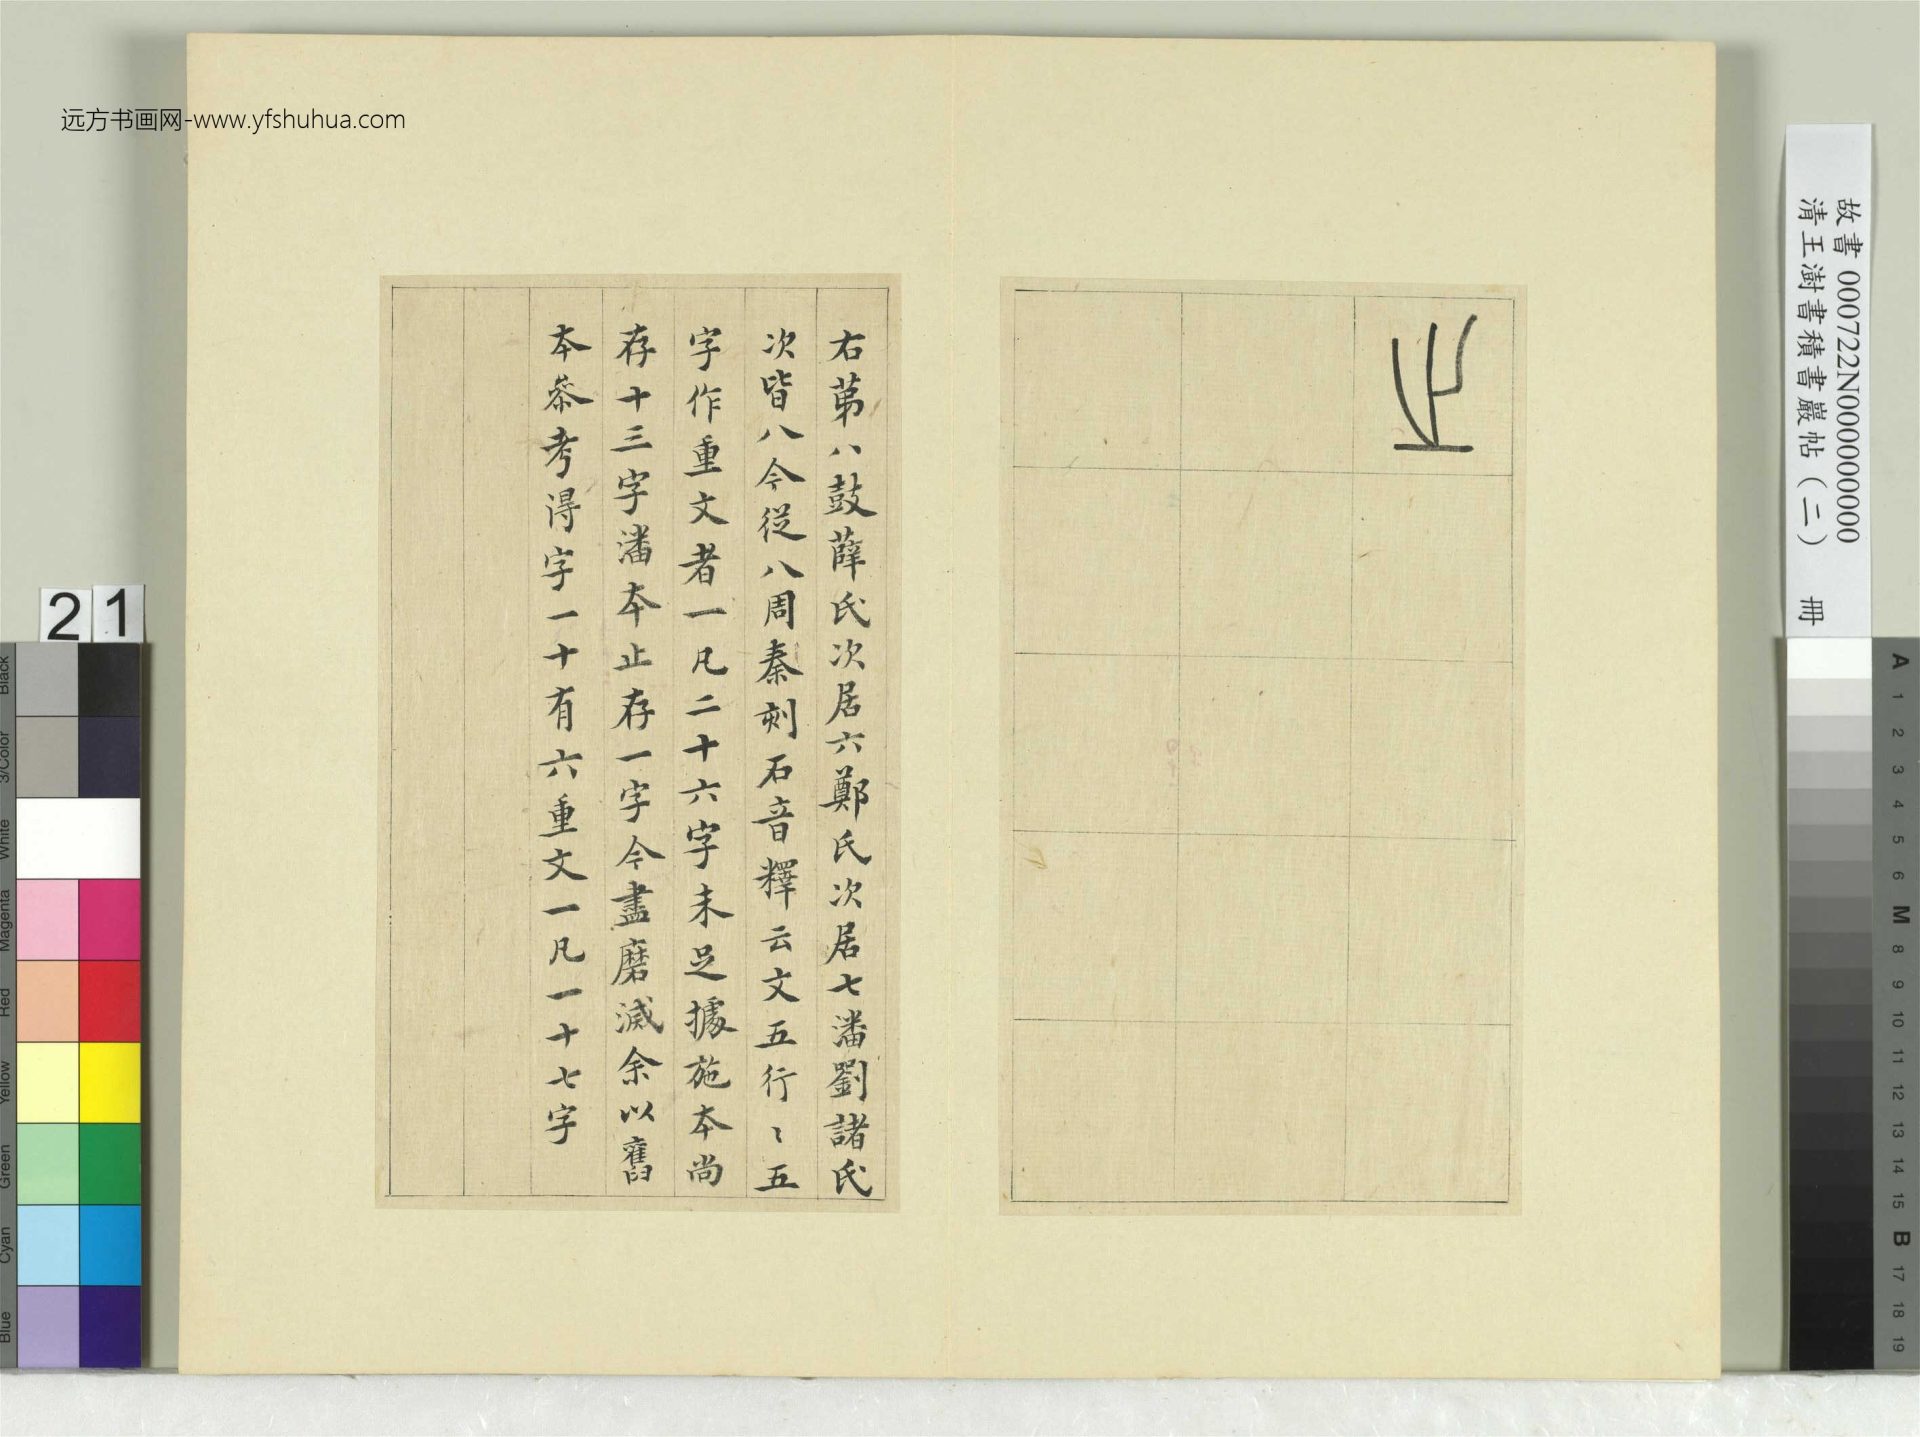 远方书画网-www.yfshuhua.com
故書 000722N000000000
清王澍書積書巖帖（二） 冊
止
右苐八鼓薛氏次居六鄭氏次居七潘劉諸氏
次皆八今從八周秦刻石音釋云文五行〻五
字作重文者一凡二十六字未足據施本尚
存十三字潘本止存一字今盡磨滅余以舊
本叅考得字一十有六重文一凡一十七字
21
Black
3/Color
White
Magenta
Red
Yellow
Green
Cyan
Blue
A 1 2 3 4 5 6 M 8 9 10 11 12 13 14 15 B 17 18 19